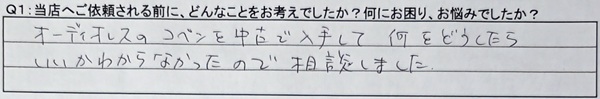 Q1:当店へご依頼される前に、どんなことをお考えでしたか？何にお困り、お悩みでしたか？
オーディオレスの コペンを中古で入手して 何をどうしたら
いいかわからなかったので 相談しました。